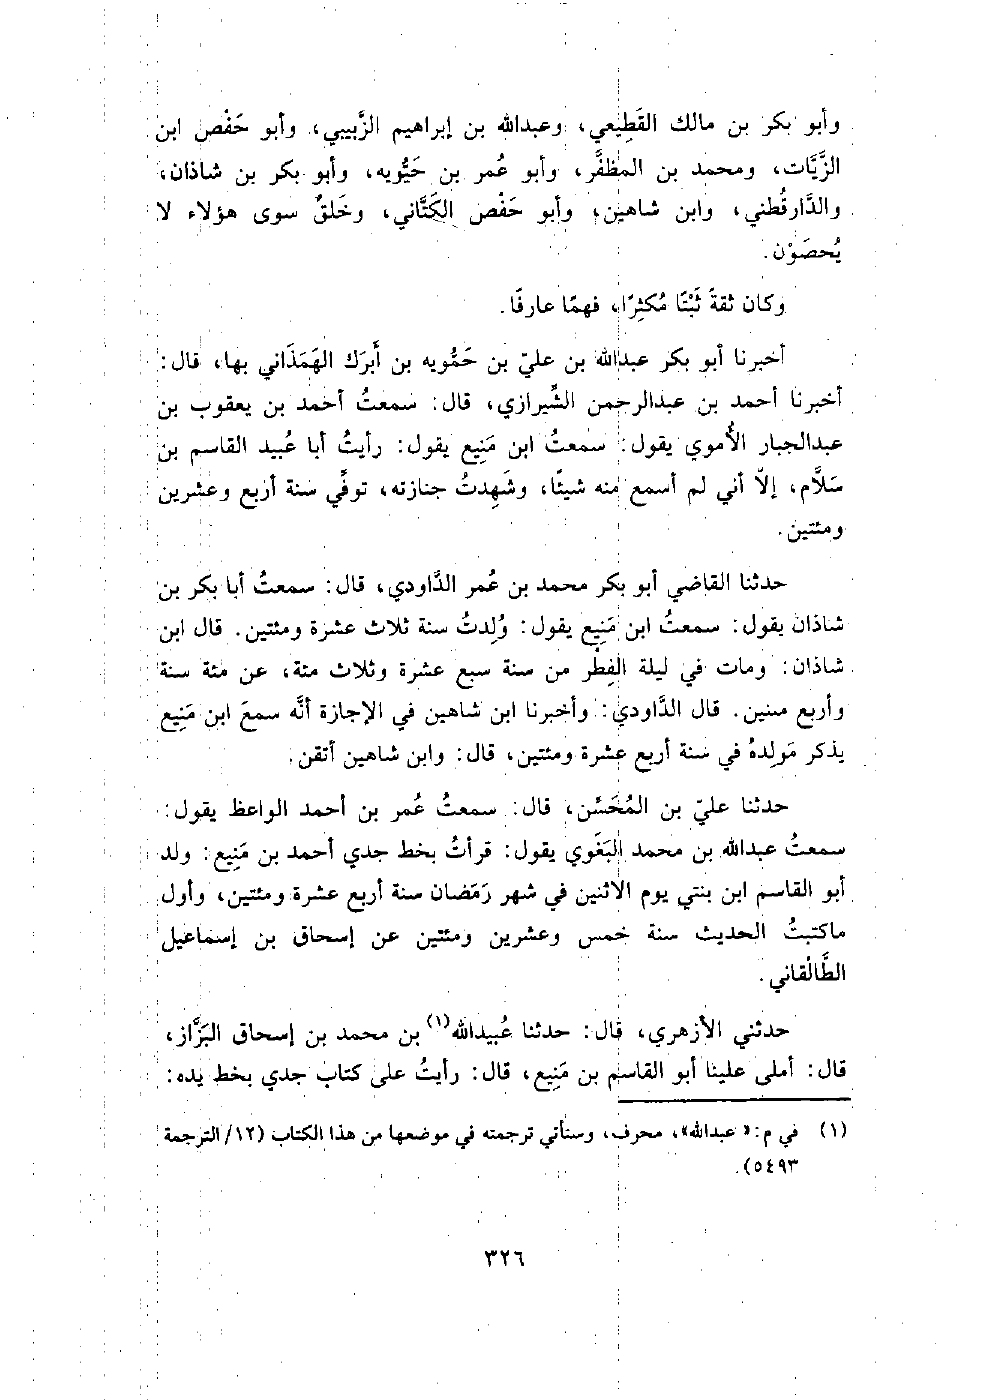 وأبو بكر بن مالك القَطِيعي، وعبدالله بن إبراهيم الزَّبيبي، وأبو حَفْص ابن
الزَّيَّات، ومحمد بن المظفَّر، وأبو عُمر بن حَيُّويه، وأبو بكر بن شاذان،
والدَّارقُطني، وابن شاهين، وأبو حَفْص الكَتَّاني، وخَلقٌ سوى هؤلاء لا
يُحصَوْن.
وكان ثقةً ثَبْتًا مُكثِرًا، فهمًا عارفًا.
أخبرنا أبو بكر عبدالله بن عليّ بن حَمُّويه بن أَبرَك الهَمَذَاني بها، قال:
أخبرنا أحمد بن عبدالرحمن الشِّيرازي، قال: سمعتُ أحمد بن يعقوب بن
عبدالجبار الأُموي يقول: سمعتُ ابن مَنِيع يقول: رأيتُ أبا عُبيد القاسم بن
سَلاَّم، إلاّ أني لم أسمع منه شيئًا، وشَهِدتُ جنازته، توفِّي سنة أربع وعشرين
ومئتين.
حدثنا القاضي أبو بكر محمد بن عُمر الدَّاودي، قال: سمعتُ أبا بكر بن
شاذان يقول: سمعتُ ابن مَنِيع يقول: وُلِدتُ سنة ثلاث عشرة ومئتين. قال ابن
شاذان: ومات في ليلة الفِطْر من سنة سبع عشرة وثلاث مئة، عن مئة سنة
وأربع سنين. قال الدَّاودي: وأخبرنا ابن شاهين في الإجازة أنَّه سمعَ ابن مَنِيع
يذكر مَولِدهُ في سنة أربع عشرة ومئتين، قال: وابن شاهين أتقن.
حدثنا عليّ بن المُحَسِّن، قال: سمعتُ عُمر بن أحمد الواعظ يقول:
سمعتُ عبدالله بن محمد البَغَوي يقول: قرأتُ بخط جدي أحمد بن مَنِيع: ولد
أبو القاسم ابن بنتي يوم الاثنين في شهر رَمَضان سنة أربع عشرة ومئتين، وأول
ماكتبتُ الحديث سنة خمس وعشرين ومئتين عن إسحاق بن إسماعيل
الطَّالْقاني.
حدثني الأزهري، قال: حدثنا عُبيدالله(١) بن محمد بن إسحاق البَزَّاز،
قال: أملى علينا أبو القاسم بن مَنِيع، قال: رأيتُ على كتاب جدي بخط يده:
(١) في م: «عبدالله»، محرف، وستأتي ترجمته في موضعها من هذا الكتاب (١٢/ الترجمة
٥٤٩٣).
٣٢٦